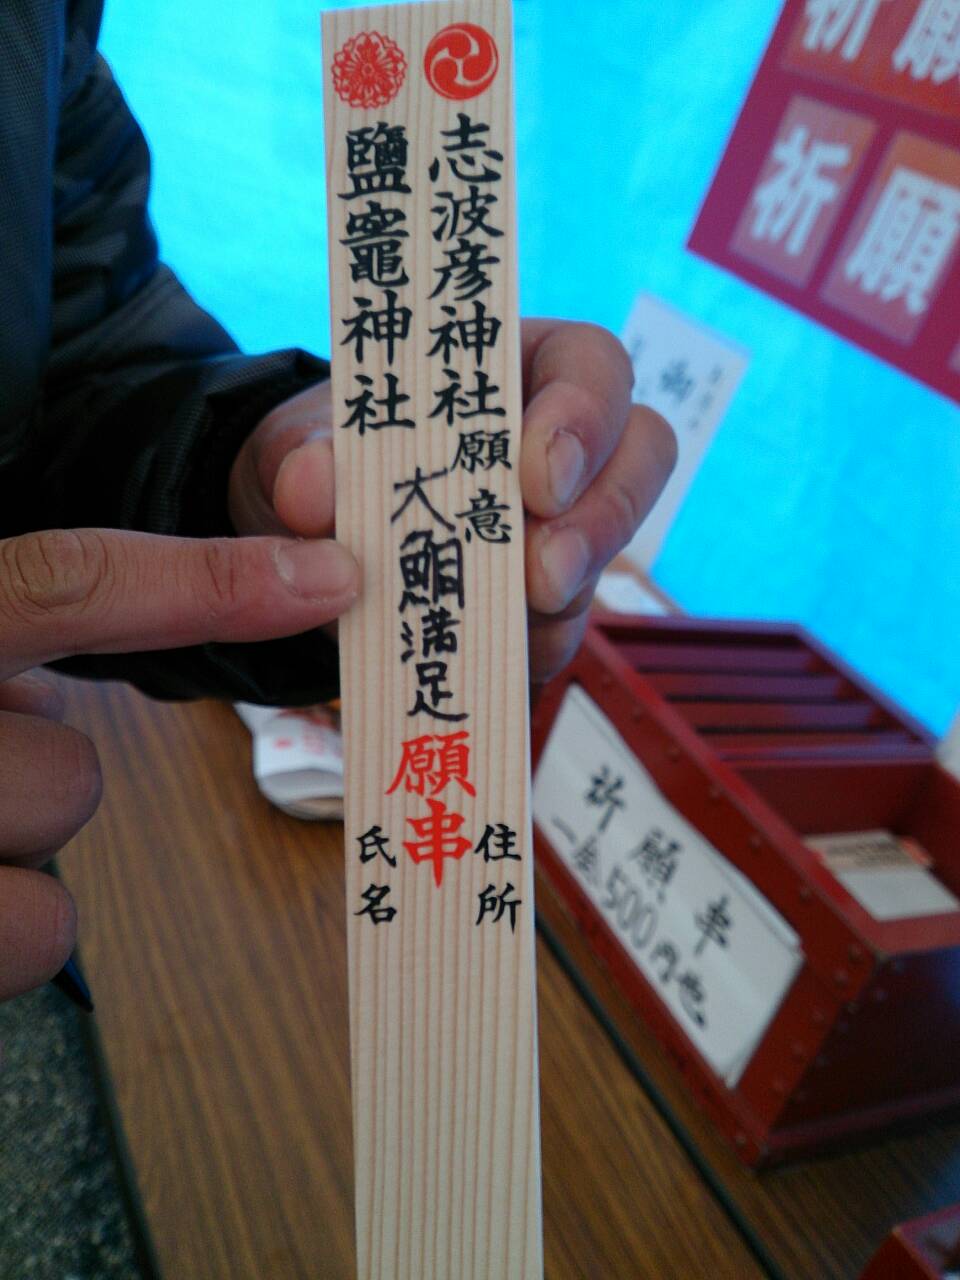 志波彦神社
鹽竈神社
願意
大鯛満足
願串
住所
氏名
祈願
祈願
祈願串
一金500円也
御